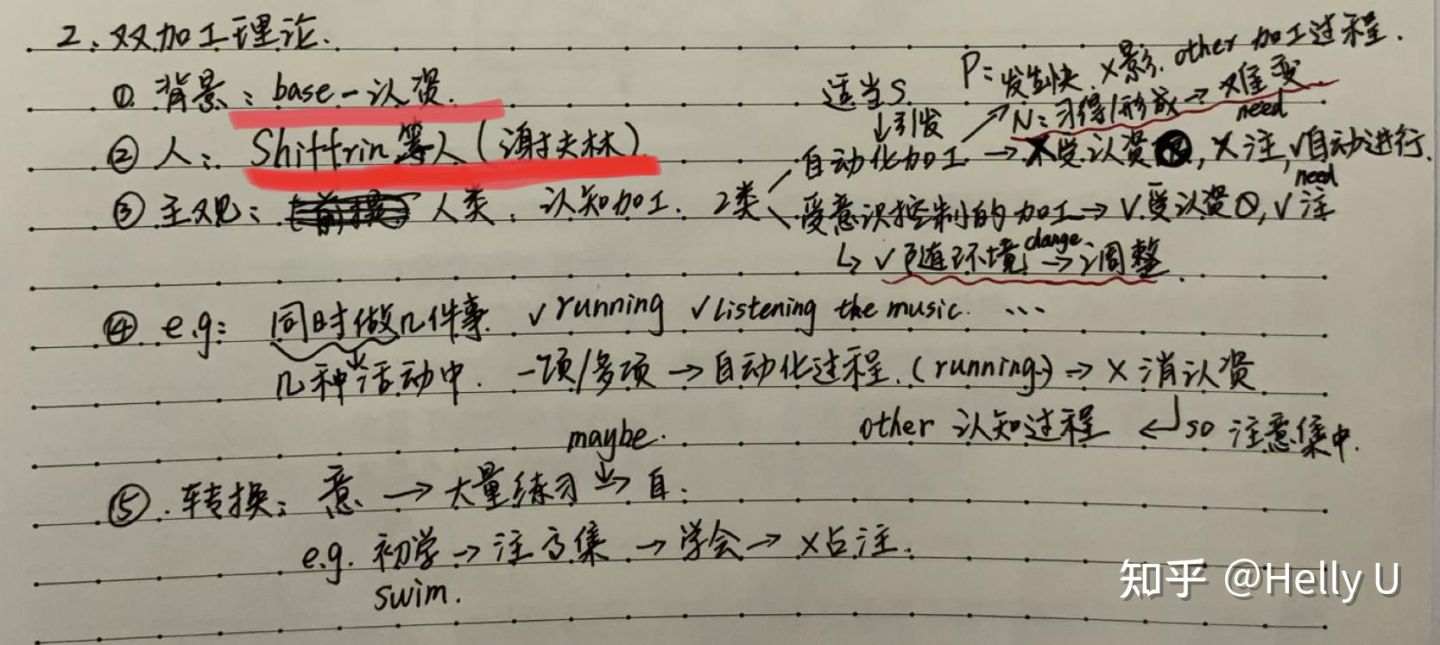 2. 双加工理论.
① 背景: base—认资.
② 人: Shiffrin等人(谢夫林)
③ 主观: 人类: 认知加工. 2类
适当S
↓引发
自动化加工 → 不受认资, X注, √自动进行.
need
P: 发生快. X影. other 加工过程.
N: 习得/形成 → X难变
need
受意识控制的加工 → √受认资, √注
↳ √随环境 change → 调整
④ e.g: 同时做几件事. √running √listening the music. ...
几种活动中. 一项/多项 → 自动化过程. (running) → X消认资
other 认知过程 ← so 注意集中.
⑤. 转换: 意 → 大量练习 → 自.
maybe.
e.g. 初学 → 注高集 → 学会 → X占注.
swim.
知乎 @Helly U